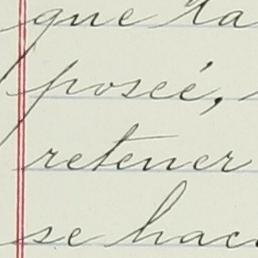 que la
poseé,
retener
se hac